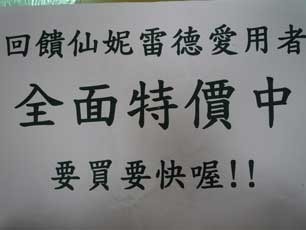 回饋仙妮雷德愛用者
全面特價中
要買要快喔!!